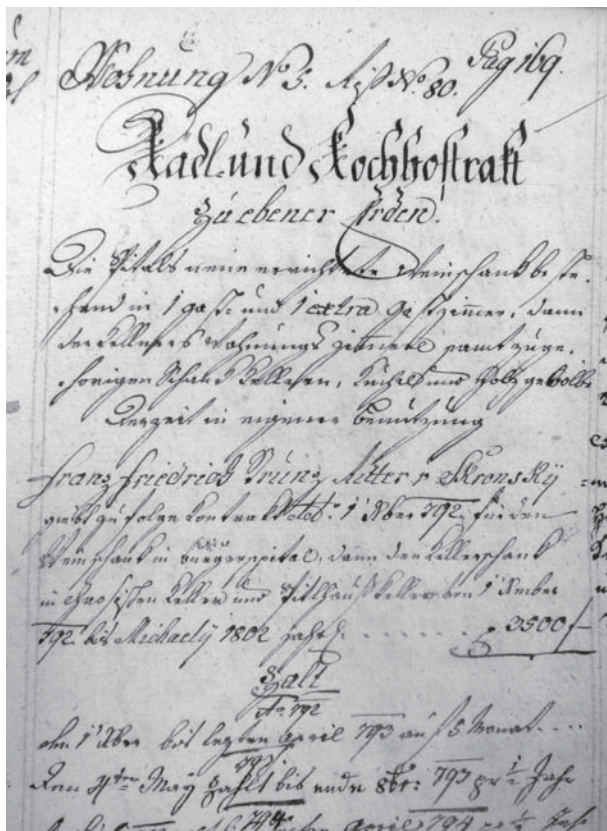 Wohnung No 5. Riß No. 80. Pag 169.
Radl und Kochhoftrakt
zu ebener Erden.
Die Spitals neue errichtete Weinschank beste-
hend in 1 gast und 1 extra Gastzimmer, dann
der Kellners Wohnungs Zimmerl samt zuge-
hörigen Schank Kellern, Kuchel und Holzgewölbe
derzeit in eigener Benutzung
Franz Friedrich Ritter v Skronsky
gibt zu folge Kontrakt 1t 9ber 792. für den
Weinschank in Bürgerspital, dann den Kellerschank
in Keller und Keller von 1t 9mber
792 bis Michaely 1802 jährl. . . . . . . . f 3500 f —
Zalt
Ao 792
den 1t 9ber bis letzten April 793 auf 5 Monat . . .
793
Den 4ten May zahlt bis ende 8br: 793 pr ½ Jahr
794
April 794 pr ½ Jahr